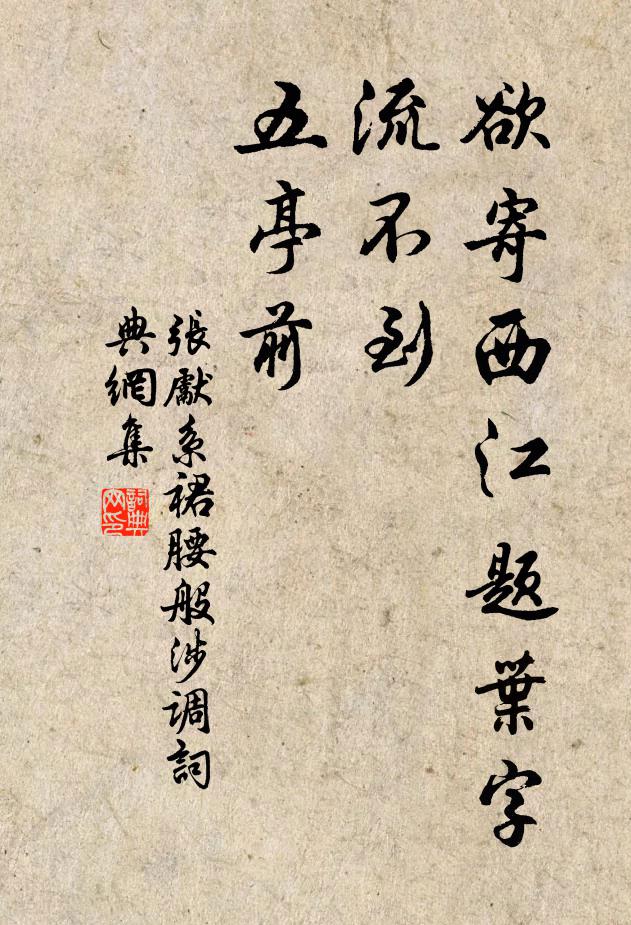 欲寄西江題葉字
流不到
五亭前
張獻系裙腰般涉調詞
典網集
詞典
网印